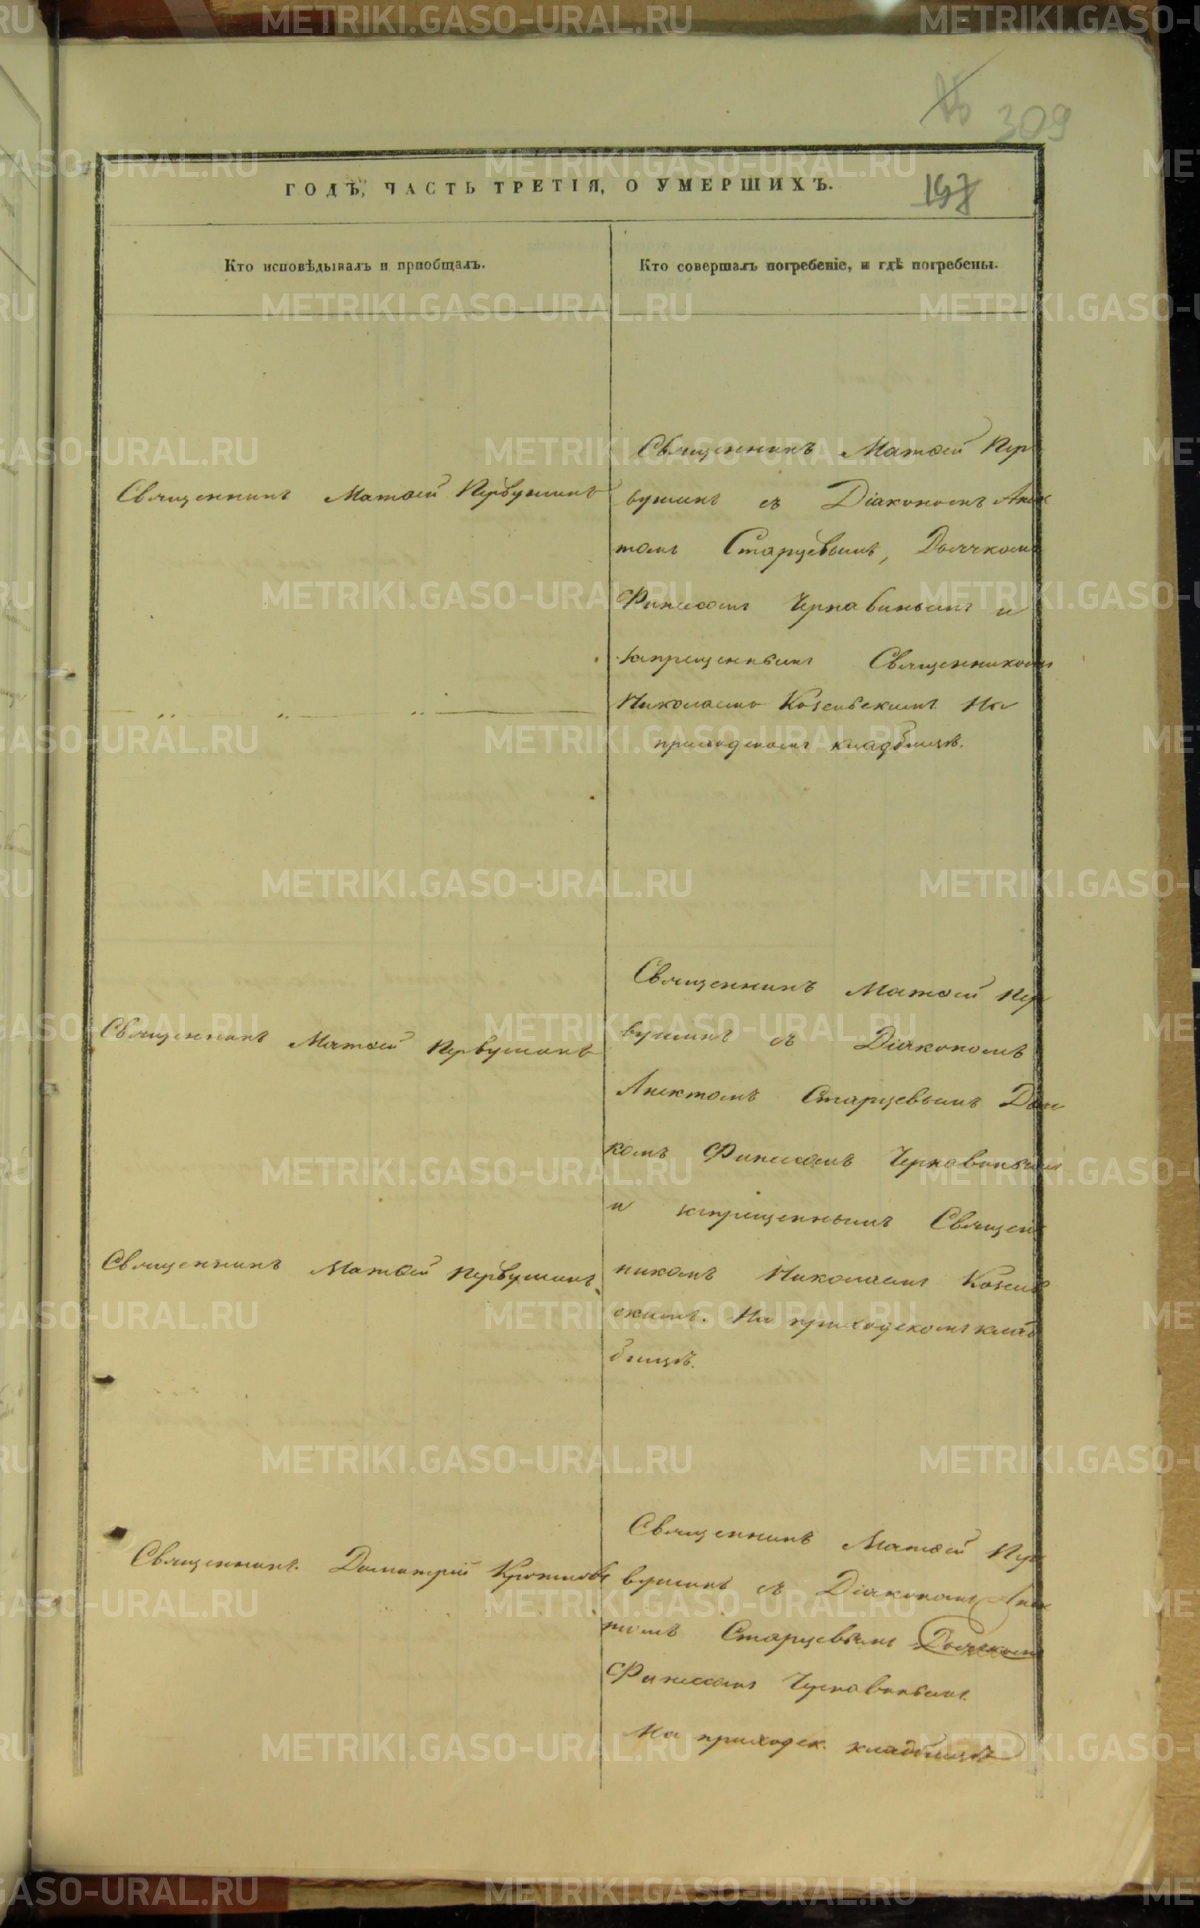 309
ГОДЪ, ЧАСТЬ ТРЕТІЯ, О УМЕРШИХЪ.
197
Кто исповѣдывалъ и пріобщалъ.
Кто совершалъ погребеніе, и гдѣ погребены.
Священникъ Матѳей Первушинъ
Священникъ Матѳей Пер
вушинъ съ Діакономъ Аник
томъ Старцевымъ, Дьячкомъ
Финеесомъ Чернавинымъ и
запрещеннымъ Священникомъ
Николаемъ На
приходскомъ кладбищѣ.
Священникъ Матѳей Первушинъ
Священникъ Матѳей Первушинъ
Священникъ Матѳей Пер
вушинъ съ Діакономъ
Аниктомъ Старцевымъ Дьяч
комъ Финеесомъ Чернавинымъ
и запрещеннымъ Священ
никомъ Николаемъ
скимъ. На приходскомъ клад
бищѣ.
Священникъ Димитрій
Священникъ Матѳей Пер
вушинъ съ Діакономъ Аник
томъ Старцевымъ Дьячкомъ
Финеесомъ Чернавинымъ.
На приходск. кладбищѣ
METRIKI.GASO-URAL.RU